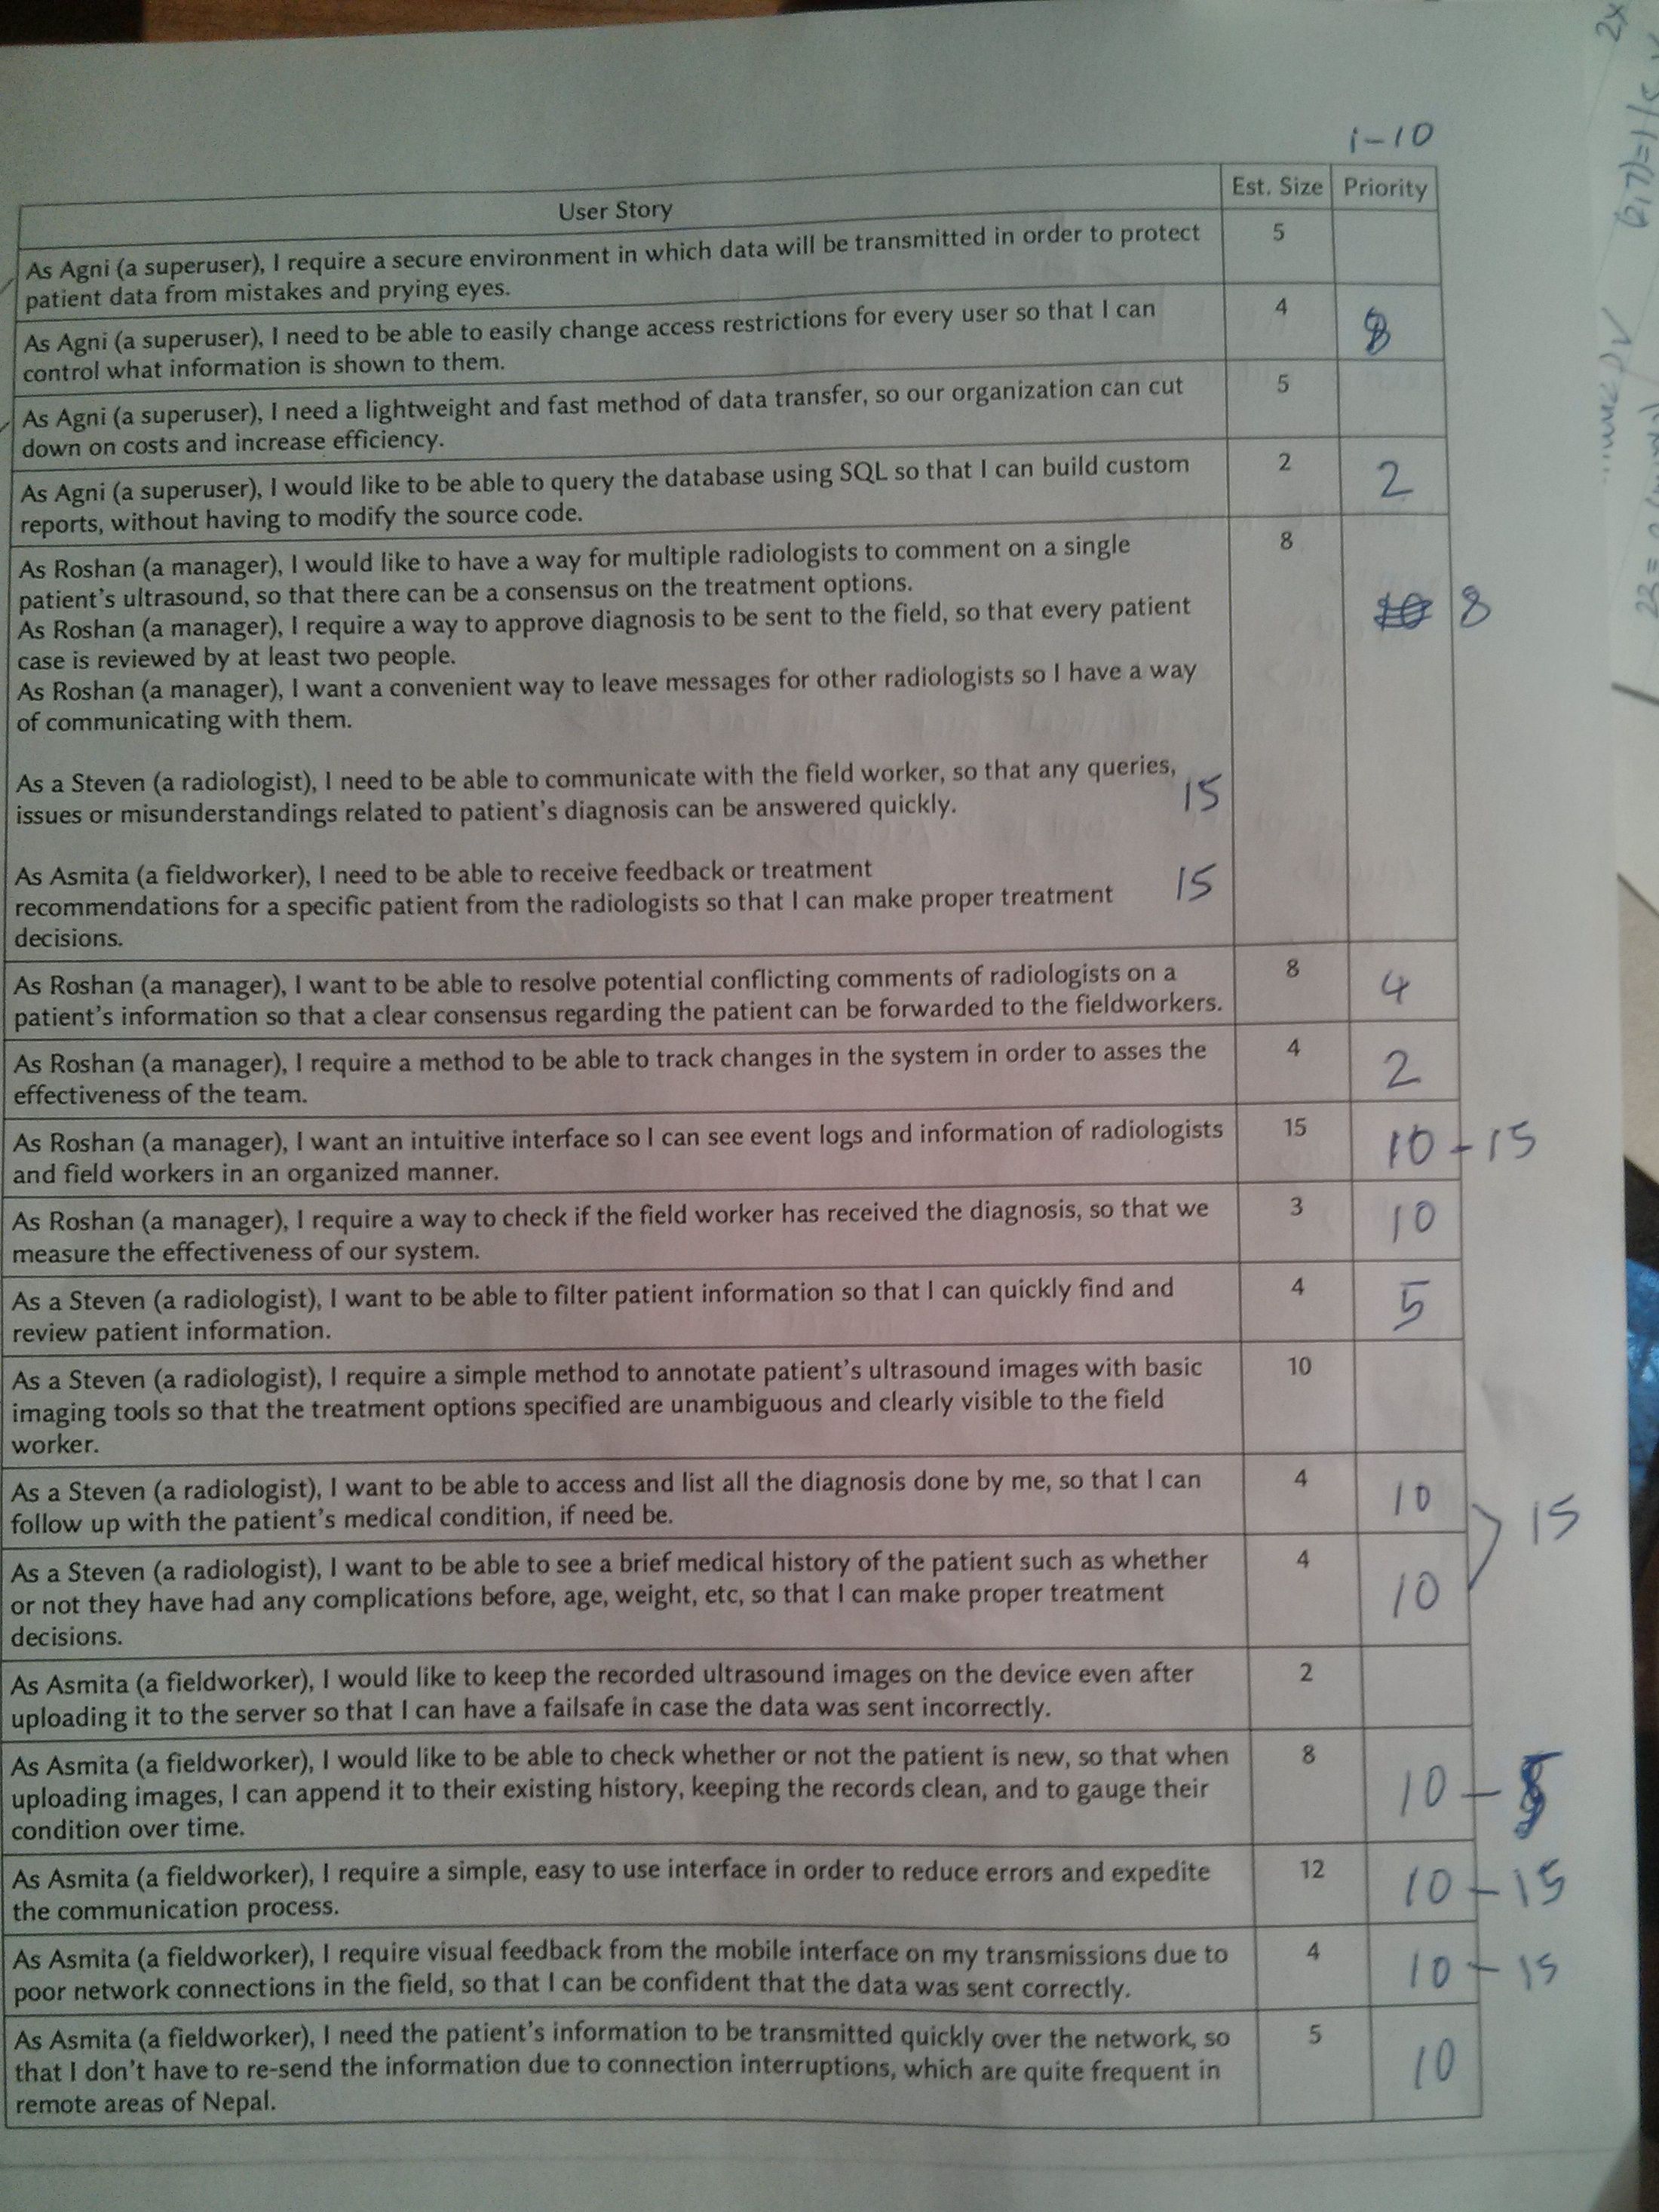 1-10
User Story Est. Size Priority
As Agni (a superuser), I require a secure environment in which data will be transmitted in order to protect 5
patient data from mistakes and prying eyes.
As Agni (a superuser), I need to be able to easily change access restrictions for every user so that I can 4 8
control what information is shown to them.
As Agni (a superuser), I need a lightweight and fast method of data transfer, so our organization can cut 5
down on costs and increase efficiency.
As Agni (a superuser), I would like to be able to query the database using SQL so that I can build custom 2 2
reports, without having to modify the source code.
As Roshan (a manager), I would like to have a way for multiple radiologists to comment on a single 8
patient's ultrasound, so that there can be a consensus on the treatment options.
As Roshan (a manager), I require a way to approve diagnosis to be sent to the field, so that every patient 10 8
case is reviewed by at least two people.
As Roshan (a manager), I want a convenient way to leave messages for other radiologists so I have a way
of communicating with them.
As a Steven (a radiologist), I need to be able to communicate with the field worker, so that any queries, 15
issues or misunderstandings related to patient's diagnosis can be answered quickly.
As Asmita (a fieldworker), I need to be able to receive feedback or treatment
recommendations for a specific patient from the radiologists so that I can make proper treatment 15
decisions.
As Roshan (a manager), I want to be able to resolve potential conflicting comments of radiologists on a 8 4
patient's information so that a clear consensus regarding the patient can be forwarded to the fieldworkers.
As Roshan (a manager), I require a method to be able to track changes in the system in order to asses the 4 2
effectiveness of the team.
As Roshan (a manager), I want an intuitive interface so I can see event logs and information of radiologists 15 10-15
and field workers in an organized manner.
As Roshan (a manager), I require a way to check if the field worker has received the diagnosis, so that we 3 10
measure the effectiveness of our system.
As a Steven (a radiologist), I want to be able to filter patient information so that I can quickly find and 4 5
review patient information.
As a Steven (a radiologist), I require a simple method to annotate patient's ultrasound images with basic 10
imaging tools so that the treatment options specified are unambiguous and clearly visible to the field
worker.
As a Steven (a radiologist), I want to be able to access and list all the diagnosis done by me, so that I can 4 10 15
follow up with the patient's medical condition, if need be.
As a Steven (a radiologist), I want to be able to see a brief medical history of the patient such as whether 4 10
or not they have had any complications before, age, weight, etc, so that I can make proper treatment
decisions.
As Asmita (a fieldworker), I would like to keep the recorded ultrasound images on the device even after 2
uploading it to the server so that I can have a failsafe in case the data was sent incorrectly.
As Asmita (a fieldworker), I would like to be able to check whether or not the patient is new, so that when 8 10-
uploading images, I can append it to their existing history, keeping the records clean, and to gauge their
condition over time.
As Asmita (a fieldworker), I require a simple, easy to use interface in order to reduce errors and expedite 12 10-15
the communication process.
As Asmita (a fieldworker), I require visual feedback from the mobile interface on my transmissions due to 4 10-15
poor network connections in the field, so that I can be confident that the data was sent correctly.
As Asmita (a fieldworker), I need the patient's information to be transmitted quickly over the network, so 5 10
that I don't have to re-send the information due to connection interruptions, which are quite frequent in
remote areas of Nepal.